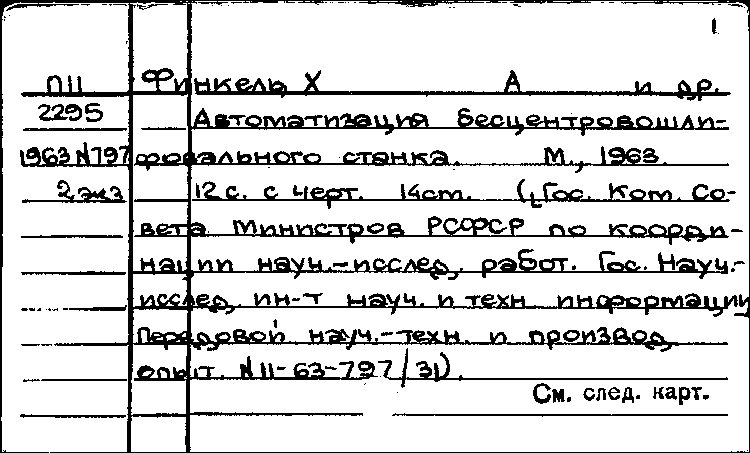 1
П11 Финкель, Х А и др.
2295 Автоматизация бесцентровошли-
1963 N797 фовального станка. М., 1963.
2 экз 12 с. с черт. 14 cm. (Гос. Ком. Со-
вета Министров РСФСР по коорди-
нации науч.-исслед. работ. Гос. Науч.-
исслед. ин-т науч. и техн. информации
Передовой науч.-техн. и производ.
опыт. N 11-63-797/31).
См. след. карт.